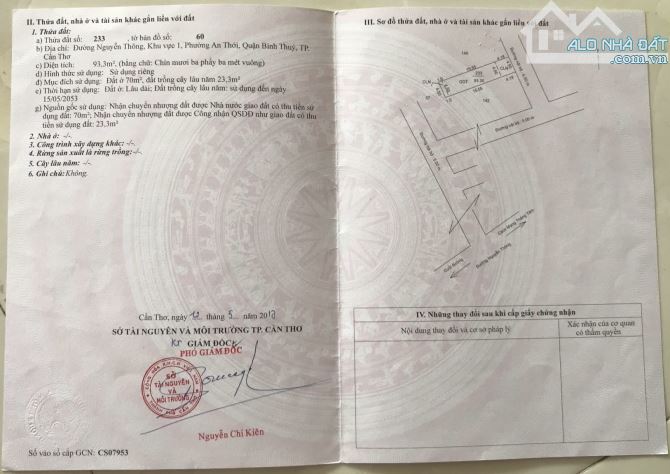 II. Thửa đất, nhà ở và tài sản khác gắn liền với đất
1. Thửa đất:
a) Thửa đất số: 233 , tờ bản đồ số: 60
b) Địa chỉ: Đường Nguyễn Thông, Khu vực 1, Phường An Thới, Quận Bình Thuỷ, TP. Cần Thơ
c) Diện tích: 93,3m², (bằng chữ: Chín mươi ba phẩy ba mét vuông)
d) Hình thức sử dụng: Sử dụng riêng
đ) Mục đích sử dụng: Đất ở 70m², đất trồng cây lâu năm 23,3m²
e) Thời hạn sử dụng: Đất ở: Lâu dài; Đất trồng cây lâu năm: sử dụng đến ngày
15/05/2053
g) Nguồn gốc sử dụng: Nhận chuyển nhượng đất được Nhà nước giao đất có thu tiền sử
dụng đất: 70m²; Nhận chuyển nhượng đất được Công nhận QSDĐ như giao đất có thu
tiền sử dụng đất: 23,3m²
2. Nhà ở: -/-
3. Công trình xây dựng khác: -/-
4. Rừng sản xuất là rừng trồng: -/-
5. Cây lâu năm: -/-
6. Ghi chú: Không.
Cần Thơ, ngày 12 tháng 5 năm
SỞ TÀI NGUYÊN VÀ MÔI TRƯỜNG TP. CẦN THƠ
KT GIÁM ĐỐC
PHÓ GIÁM ĐỐC
SỞ
TÀI NGUYÊN
VÀ
MÔI TRƯỜNG
Nguyễn Chí Kiên
Số vào sổ cấp GCN: CS07953
III. Sơ đồ thửa đất, nhà ở và tài sản khác gắn liền với đất
ALO NHÀ ĐẤT
.com.vn
233
CLN
ODT
142
Cách Mạng Tháng Tám
Đường Nguyễn Thông
Cuối đường
IV. Những thay đổi sau khi cấp giấy chứng nhận
Nội dung thay đổi và cơ sở pháp lý
Xác nhận của cơ quan
có thẩm quyền